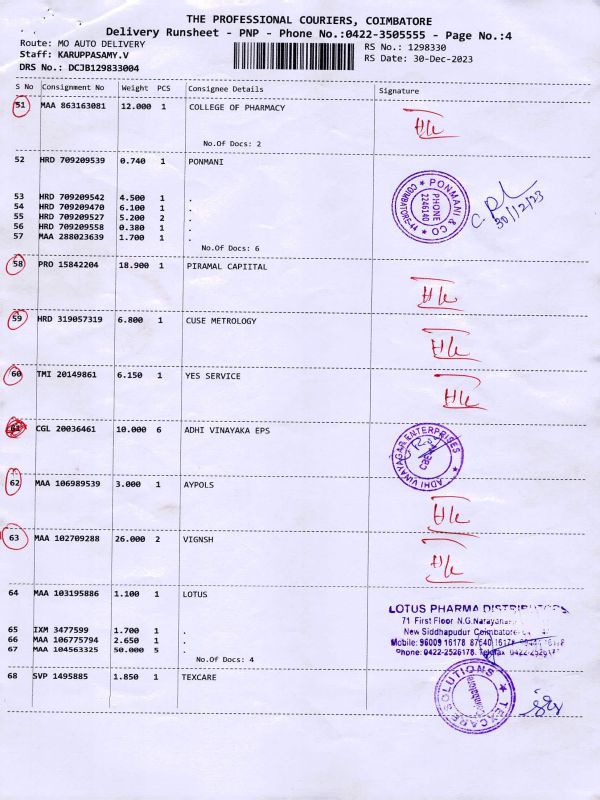 THE PROFESSIONAL COURIERS, COIMBATORE
Delivery Runsheet - PNP - Phone No.:0422-3505555 - Page No.:4
Route: MO AUTO DELIVERY RS No.: 1298330
Staff: KARUPPASAMY.V RS Date: 30-Dec-2023
DRS No.: DCJB129833004
S No Consignment No Weight PCS Consignee Details Signature
51 MAA 863163081 12.000 1 COLLEGE OF PHARMACY
No.Of Docs: 2
52 HRD 709209539 0.740 1 PONMANI
53 HRD 709209542 4.500 1 .
54 HRD 709209470 6.100 1 .
55 HRD 709209527 5.200 2 .
56 HRD 709209558 0.380 1 .
57 MAA 288023639 1.700 1 .
No.Of Docs: 6
PONMANI & CO
COIMBATORE-44
PHONE
2246140
30/12/23
58 PRO 15842204 18.900 1 PIRAMAL CAPIITAL
59 HRD 319057319 6.800 1 CUSE METROLOGY
60 TMI 20149861 6.150 1 YES SERVICE
61 CGL 20036461 10.000 6 ADHI VINAYAKA EPS
ADHI VINAYAGAR ENTERPRISES
62 MAA 106989539 3.000 1 AYPOLS
63 MAA 102709288 26.000 2 VIGNSH
64 MAA 103195886 1.100 1 LOTUS
65 IXM 3477599 1.700 1 .
66 MAA 106775794 2.650 1 .
67 MAA 104563325 50.000 5 .
No.Of Docs: 4
LOTUS PHARMA DISTRIBUTORS
71 First Floor N.G.Narayana
New Siddhapudur Coimbatore
Mobile: 96009 16178
Phone: 0422-2526178. Telefax 0422-2526
68 SVP 1495885 1.850 1 TEXCARE
TEXCARE SOLUTIONS
Coimbatore